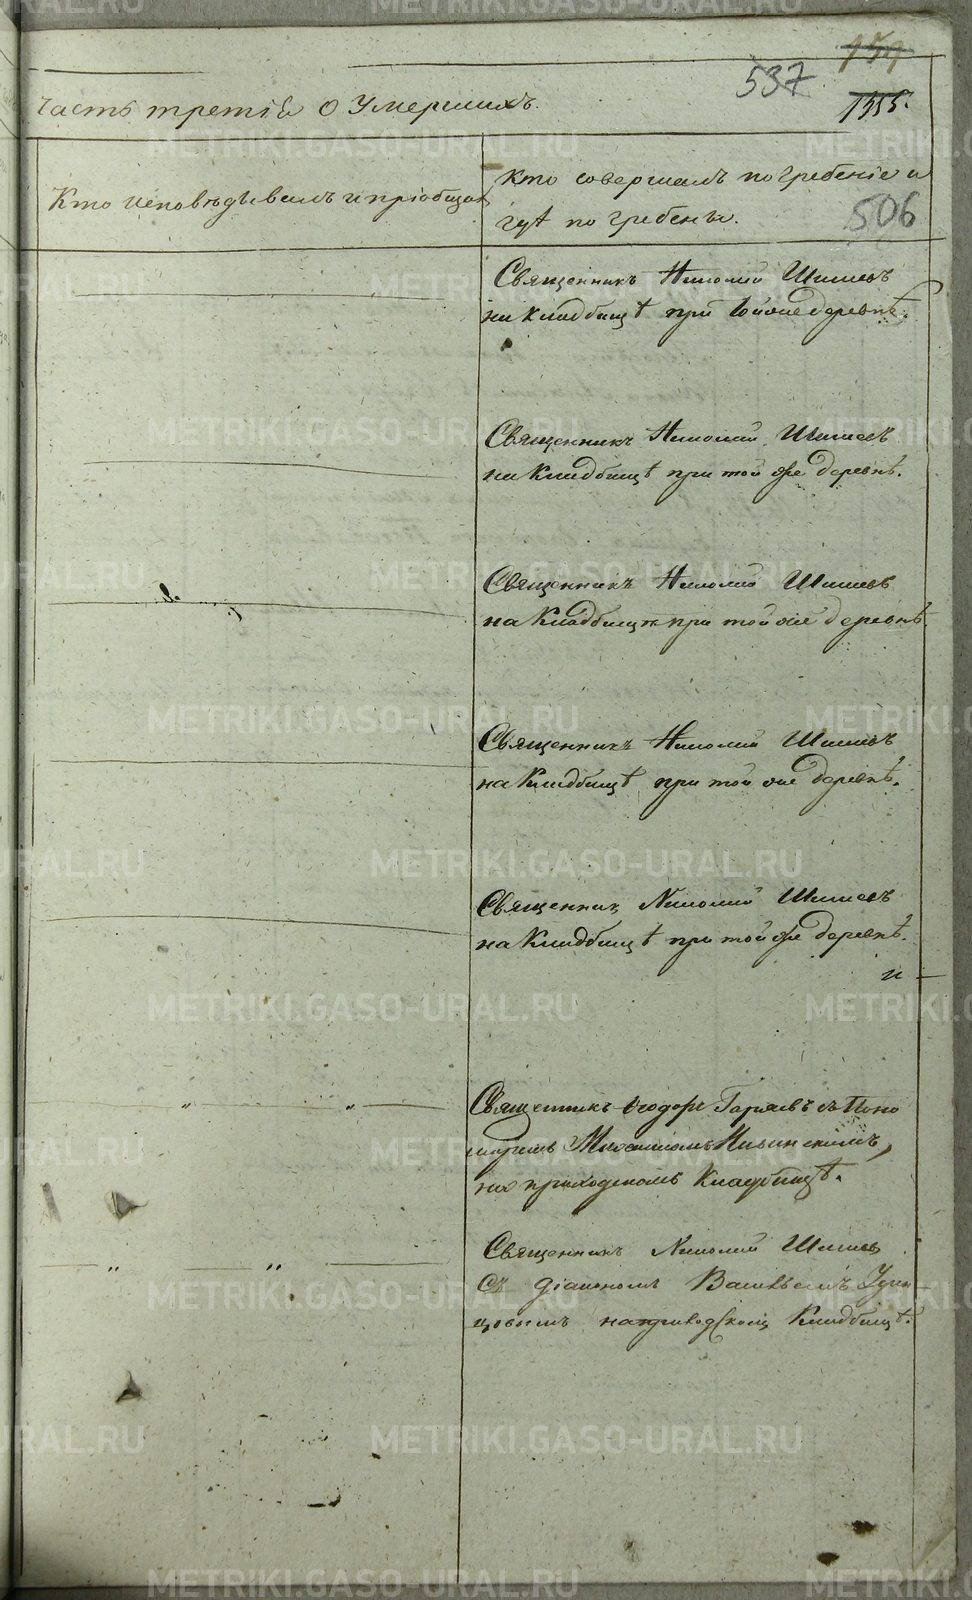 537
1355.
Часть третія о Умершихъ.
Кто исповѣдывалъ и пріобщалъ
Кто совершалъ погребеніе и
гдѣ погребены.
506
Священникъ Николай Шишевъ
на кладбищѣ при той же деревнѣ.
Священникъ Николай Шишевъ
на кладбищѣ при той же деревнѣ.
Священникъ Николай Шишевъ
на кладбищѣ при той же деревнѣ.
Священникъ Николай Шишевъ
на кладбищѣ при той же деревнѣ.
Священник Николай Шишевъ
на кладбищѣ при той же деревнѣ.
Священникъ Ѳеодоръ Гаряевъ съ Поно
маремъ Ильинскимъ,
на приходскомъ кладбищѣ.
Священникъ Николай Шишев
Съ діакономъ Васильемъ Удин
цовымъ на приходскомъ кладбищѣ.
METRIKI.GASO-URAL.RU